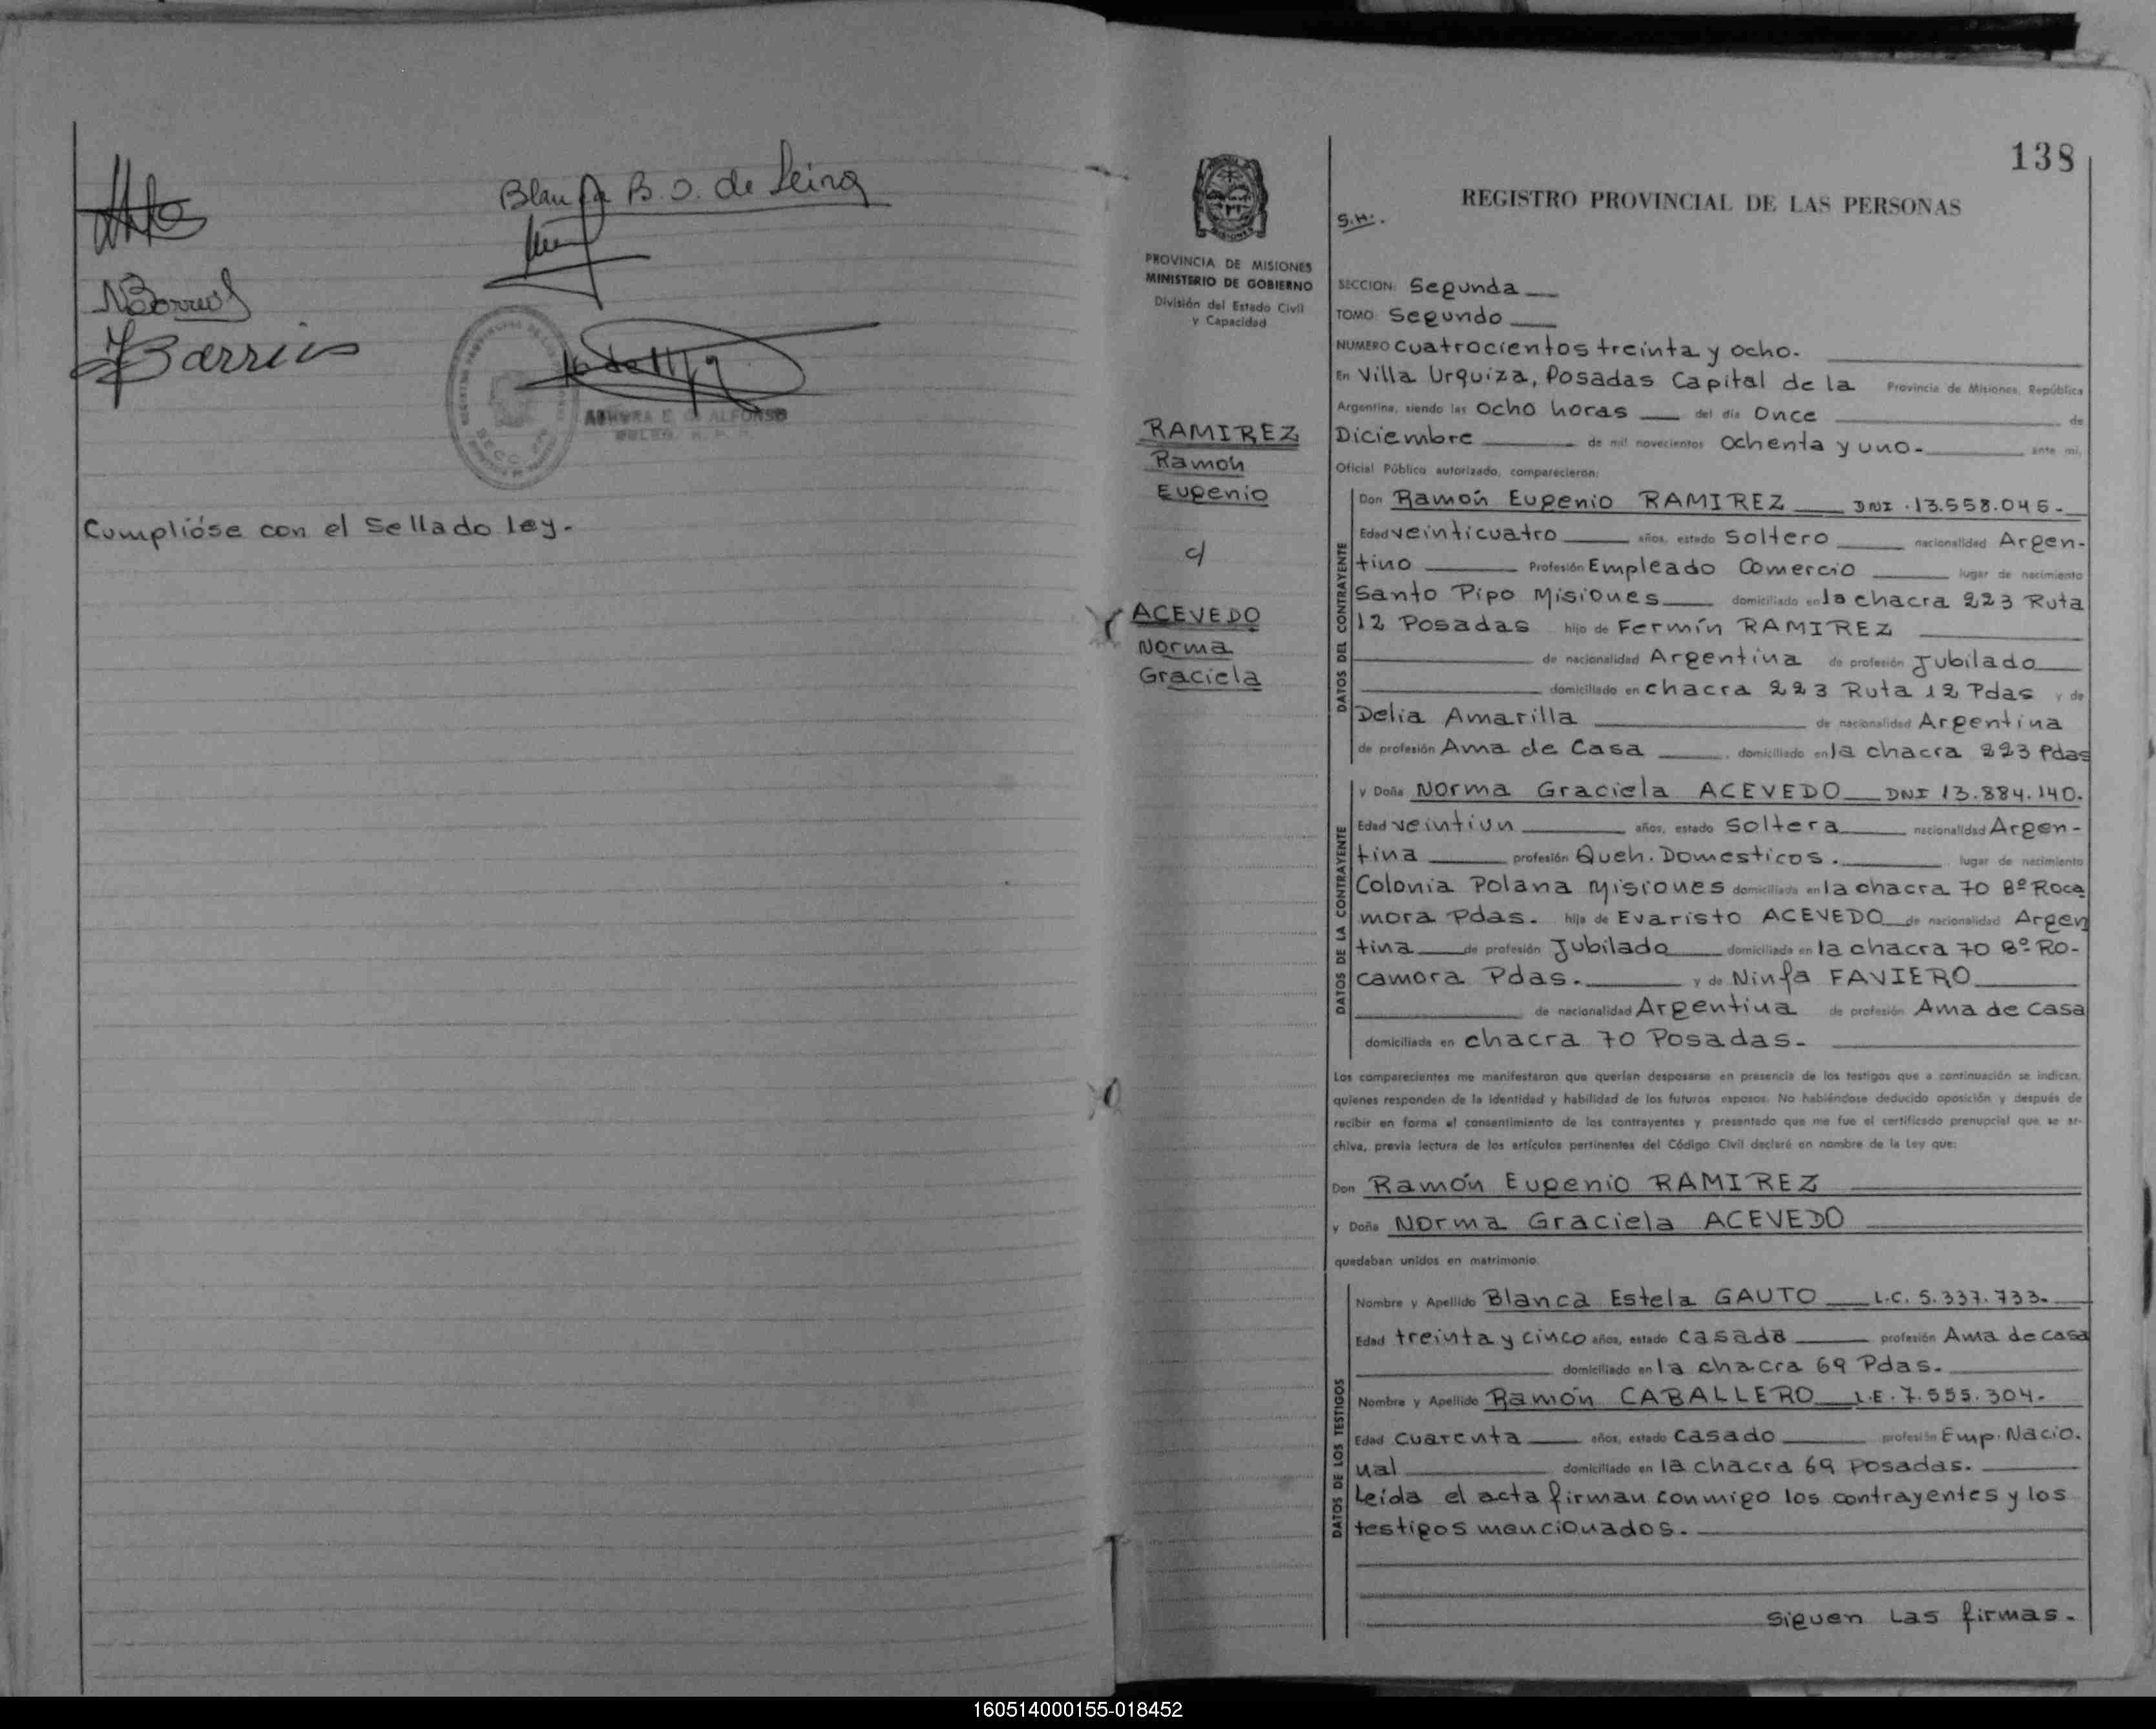 Blanca B. O. de Leira
NBarrios
Barrios
AURORA E. G. ALFONSO
Cumplióse con el Sellado ley.-
138
REGISTRO PROVINCIAL DE LAS PERSONAS
S.H.
PROVINCIA DE MISIONES
MINISTERIO DE GOBIERNO
División del Estado Civil
y Capacidad
RAMIREZ
Ramón
Eugenio
c/
ACEVEDO
Norma
Graciela
SECCION: Segunda
TOMO Segundo
NUMERO Cuatrocientos treinta y ocho.
En Villa Urquiza, Posadas Capital de la Provincia de Misiones, República
Argentina, siendo las Ocho horas del día Once de
Diciembre de mil novecientos Ochenta y uno- ante mí,
Oficial Público autorizado, comparecieron:
DATOS DEL CONTRAYENTE
Don Ramón Eugenio RAMIREZ DNI .13.558.045.-
Edad veinticuatro años, estado Soltero nacionalidad Argen-
tino Profesión Empleado Comercio lugar de nacimiento
Santo Pipo Misiones domiciliado en la chacra 223 Ruta
12 Posadas hijo de Fermín RAMIREZ
de nacionalidad Argentina de profesión Jubilado
domiciliado en chacra 223 Ruta 12 Pdas y de
Delia Amarilla de nacionalidad Argentina
de profesión Ama de Casa domiciliado en la chacra 223 Pdas
DATOS DE LA CONTRAYENTE
y Doña Norma Graciela ACEVEDO DNI 13.884.140.
Edad veintiun años, estado Soltera nacionalidad Argen-
tina profesión Queh. Domesticos. lugar de nacimiento
Colonia Polana Misiones domiciliada en la chacra 70 Bº Roca
mora Pdas. hija de Evaristo ACEVEDO de nacionalidad Argen
tina de profesión Jubilado domiciliado en la chacra 70 Bº Ro-
camora Pdas. y de Ninfa FAVIERO
de nacionalidad Argentina de profesión Ama de Casa
domiciliada en chacra 70 Posadas-
Los comparecientes me manifestaron que querían desposarse en presencia de los testigos que a continuación se indican,
quienes responden de la identidad y habilidad de los futuros esposos. No habiéndose deducido oposición y después de
recibir en forma el consentimiento de los contrayentes y presentado que me fue el certificado prenupcial que se ar-
chiva, previa lectura de los artículos pertinentes del Código Civil declaré en nombre de la Ley que:
Don Ramón Eugenio RAMIREZ
y Doña Norma Graciela ACEVEDO
quedaban unidos en matrimonio.
DATOS DE LOS TESTIGOS
Nombre y Apellido Blanca Estela GAUTO L.C. 5.337.733-
Edad treinta y cinco años, estado casada profesión Ama de casa
domiciliado en la chacra 69 Pdas.
Nombre y Apellido Ramón CABALLERO L.E. 7.555.304-
Edad cuarenta años, estado casado profesión Emp. Nacio.
nal domiciliado en la chacra 69 Posadas.
Leída el acta firman conmigo los contrayentes y los
testigos mencionados.-
Siguen Las firmas-
160514000155-018452